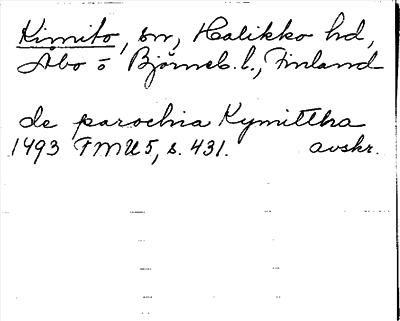 Kimito, sn, Halikko hd,
Åbo o Björneb. l., Finland
de parochia Kymittha
1493 FMU 5, s. 431. avskr.